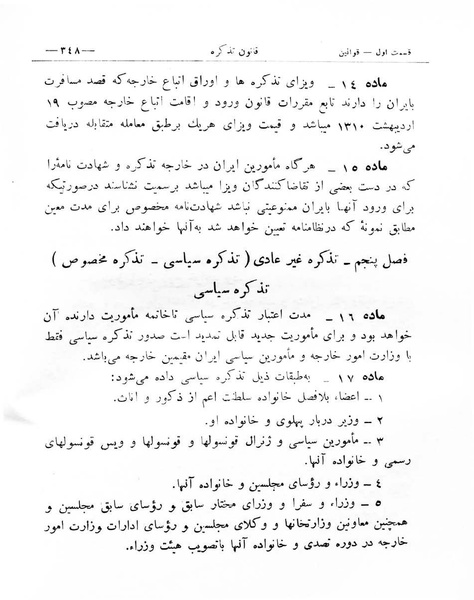 قسمت اول — قوانین
قانون تذکره
—۳٤۸—
ماده ۱٤ ـ ویزای تذکره ها و اوراق اتباع خارجه‌که قصد مسافرت
بایران را دارند تابع مقررات قانون ورود و اقامت اتباع خارجه مصوب ۱۹
اردیبهشت ۱۳۱۰ میباشد و قیمت ویزای هریك برطبق معامله متقابله دریافت
می‌شود.
ماده ۱۵ ـ هرگاه مأمورین ایران در خارجه تذکره و شهادت نامه‌را
که در دست بعضی از تقاضاکنندگان ویزا میباشد برسمیت نشناسند درصورتیکه
برای ورود آنها بایران ممنوعیتی نباشد شهادت‌نامه مخصوص برای مدت معین
مطابق نمونهٔ که درنظامنامه تعیین خواهد شد به‌آنها خواهند داد.
فصل پنجم ـ تذکره غیر عادی ( تذکره سیاسی ـ تذکره مخصوص )
تذکره سیاسی
ماده ۱۶ ـ مدت اعتبار تذکره سیاسی تاخاتمه مأموریت دارنده آن
خواهد بود و برای مأموریت جدید قابل تمدید است صدور تذکره سیاسی فقط
با وزارت امور خارجه و مأمورین سیاسی ایران مقیمین خارجه می‌باشد.
ماده ۱۷ ـ به‌طبقات ذیل تذکره سیاسی داده می‌شود:
۱ ـ اعضاء بلافصل خانواده سلطنت اعم از ذکور و اناث.
۲ ـ وزیر دربار پهلوی و خانواده او.
۳ ـ مأمورین سیاسی و ژنرال قونسولها و قونسولها و ویس قونسولهای
رسمی و خانواده آنها.
٤ ـ وزراء و رؤسای مجلسین و خانواده آنها.
۵ ـ وزراء و سفرا و وزرای مختار سابق و رؤسای سابق مجلسین و
همچنین معاونین وزارتخانها و وکلای مجلسین و رؤسای ادارات وزارت امور
خارجه در دوره تصدی و خانواده آنها باتصویب هیئت وزراء.